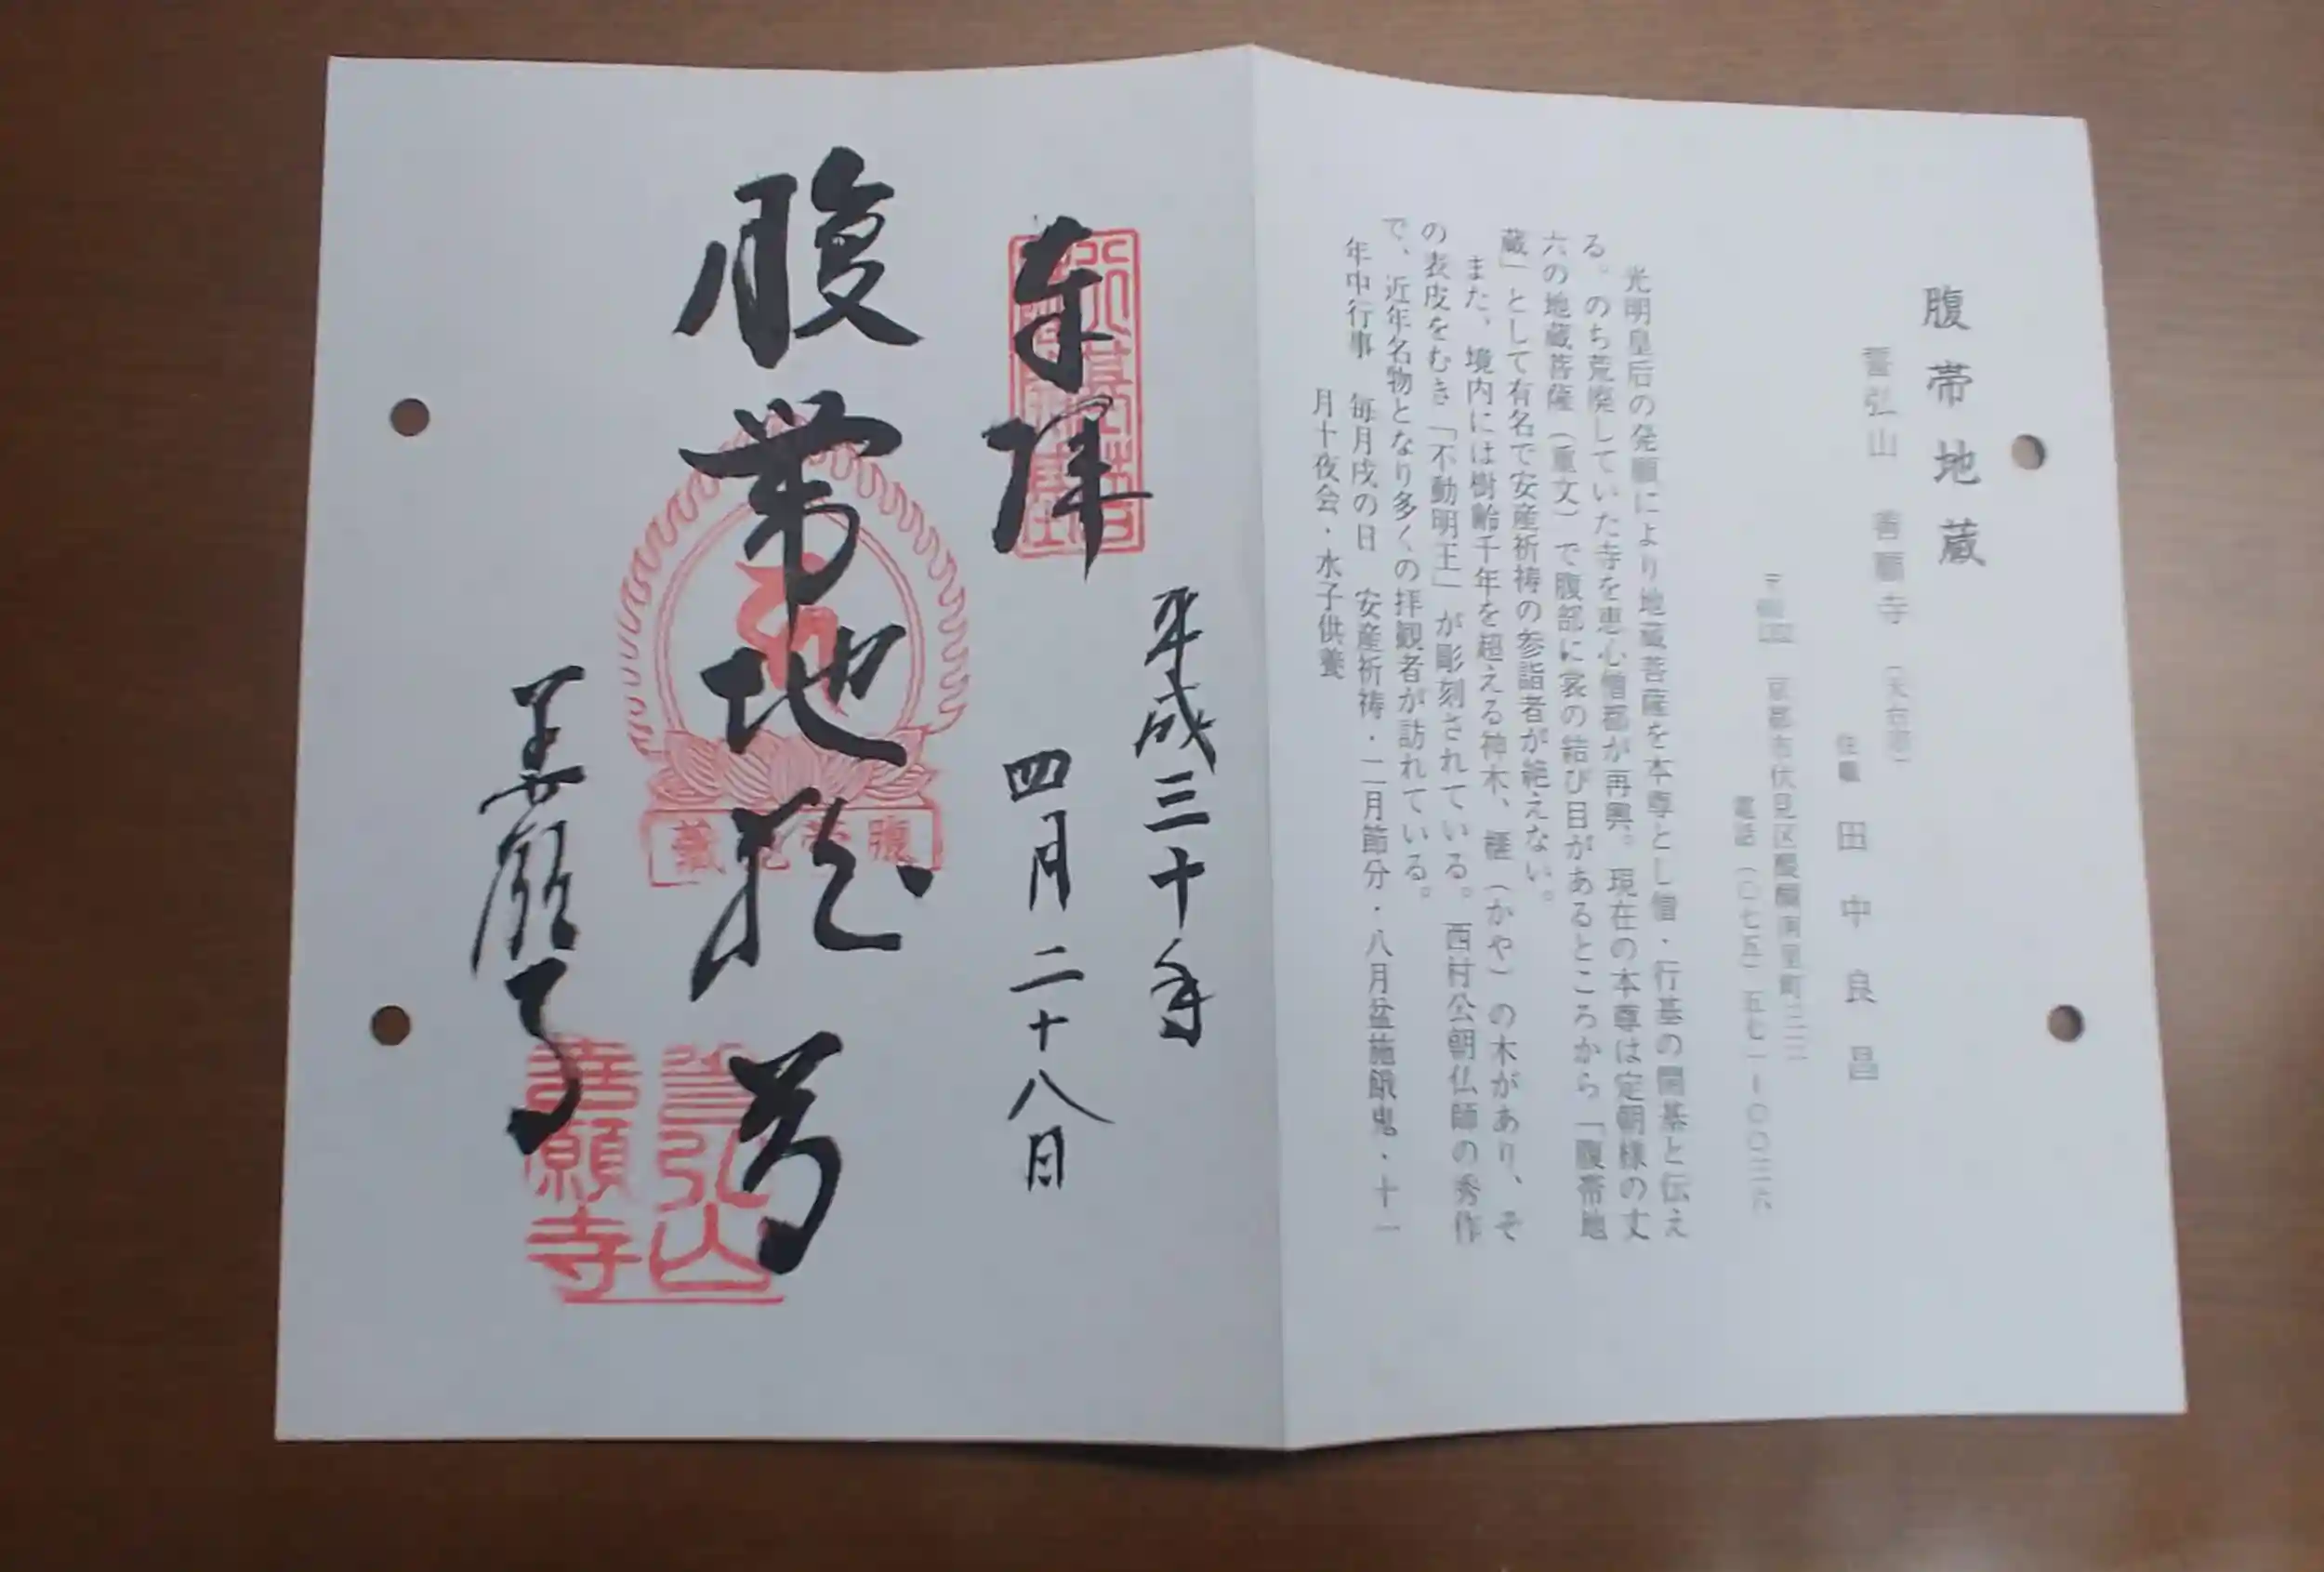 腹帯地蔵
誓弘山 善願寺（天台宗）
住職 田中良昌
京都市伏見区醍醐南里町三三
電話（〇七五）五七一-〇〇三六
光明皇后の発願により地蔵菩薩を本尊とし僧・行基の開基と伝え
る。のち荒廃していた寺を恵心僧都が再興。現在の本尊は定朝様の丈
六の地蔵菩薩（重文）で腹部に裳の結び目があるところから「腹帯地
蔵」として有名で安産祈祷の参詣者が絶えない。
また、境内には樹齢千年を超える神木、榧（かや）の木があり、そ
の表皮をむき「不動明王」が彫刻されている。西村公朝仏師の秀作
で、近年名物となり多くの拝観者が訪れている。
年中行事 毎月戌の日 安産祈祷・二月節分・八月盆施餓鬼・十一
月十夜会・水子供養
平成三十年
四月二十八日
奉拝
腹帯地蔵尊
腹帯地蔵
善願寺
誓弘山
善願寺